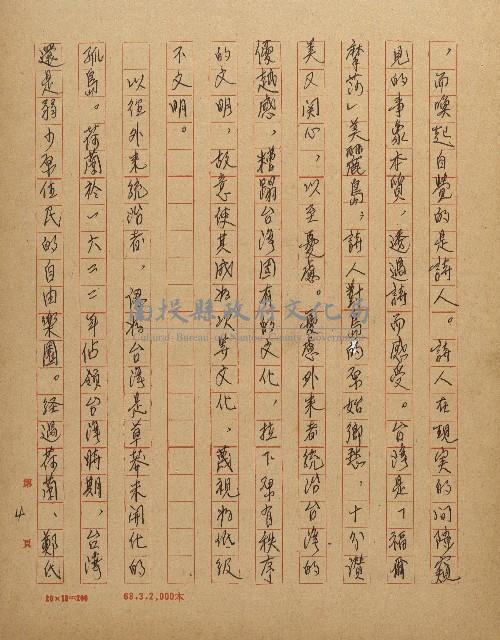 ，而喚起自覺的是詩人。詩人在現实的间隙窺
見的事象本質，透過詩而感受。台湾是「福爾
摩莎」美麗島，詩人對島的原始鄉愁，十分讚
美又関心，以至憂慮。憂慮外来者統治台湾的
優越感，糟蹋台湾固有的文化，拉下原有秩序
的文明，故意使其成为次等文化，蔑視为低級
不文明。
以往外来統治者，認为台湾是草莽未開化的
孤島。荷蘭於一六二二年佔領台湾時期，台湾
還是弱少原住民的自由樂園。経過荷蘭、鄭氏
第 4 頁
20×10=200 68.3.2,000本
南投縣政府文化局
Cultural Bureau of Nantou County Government